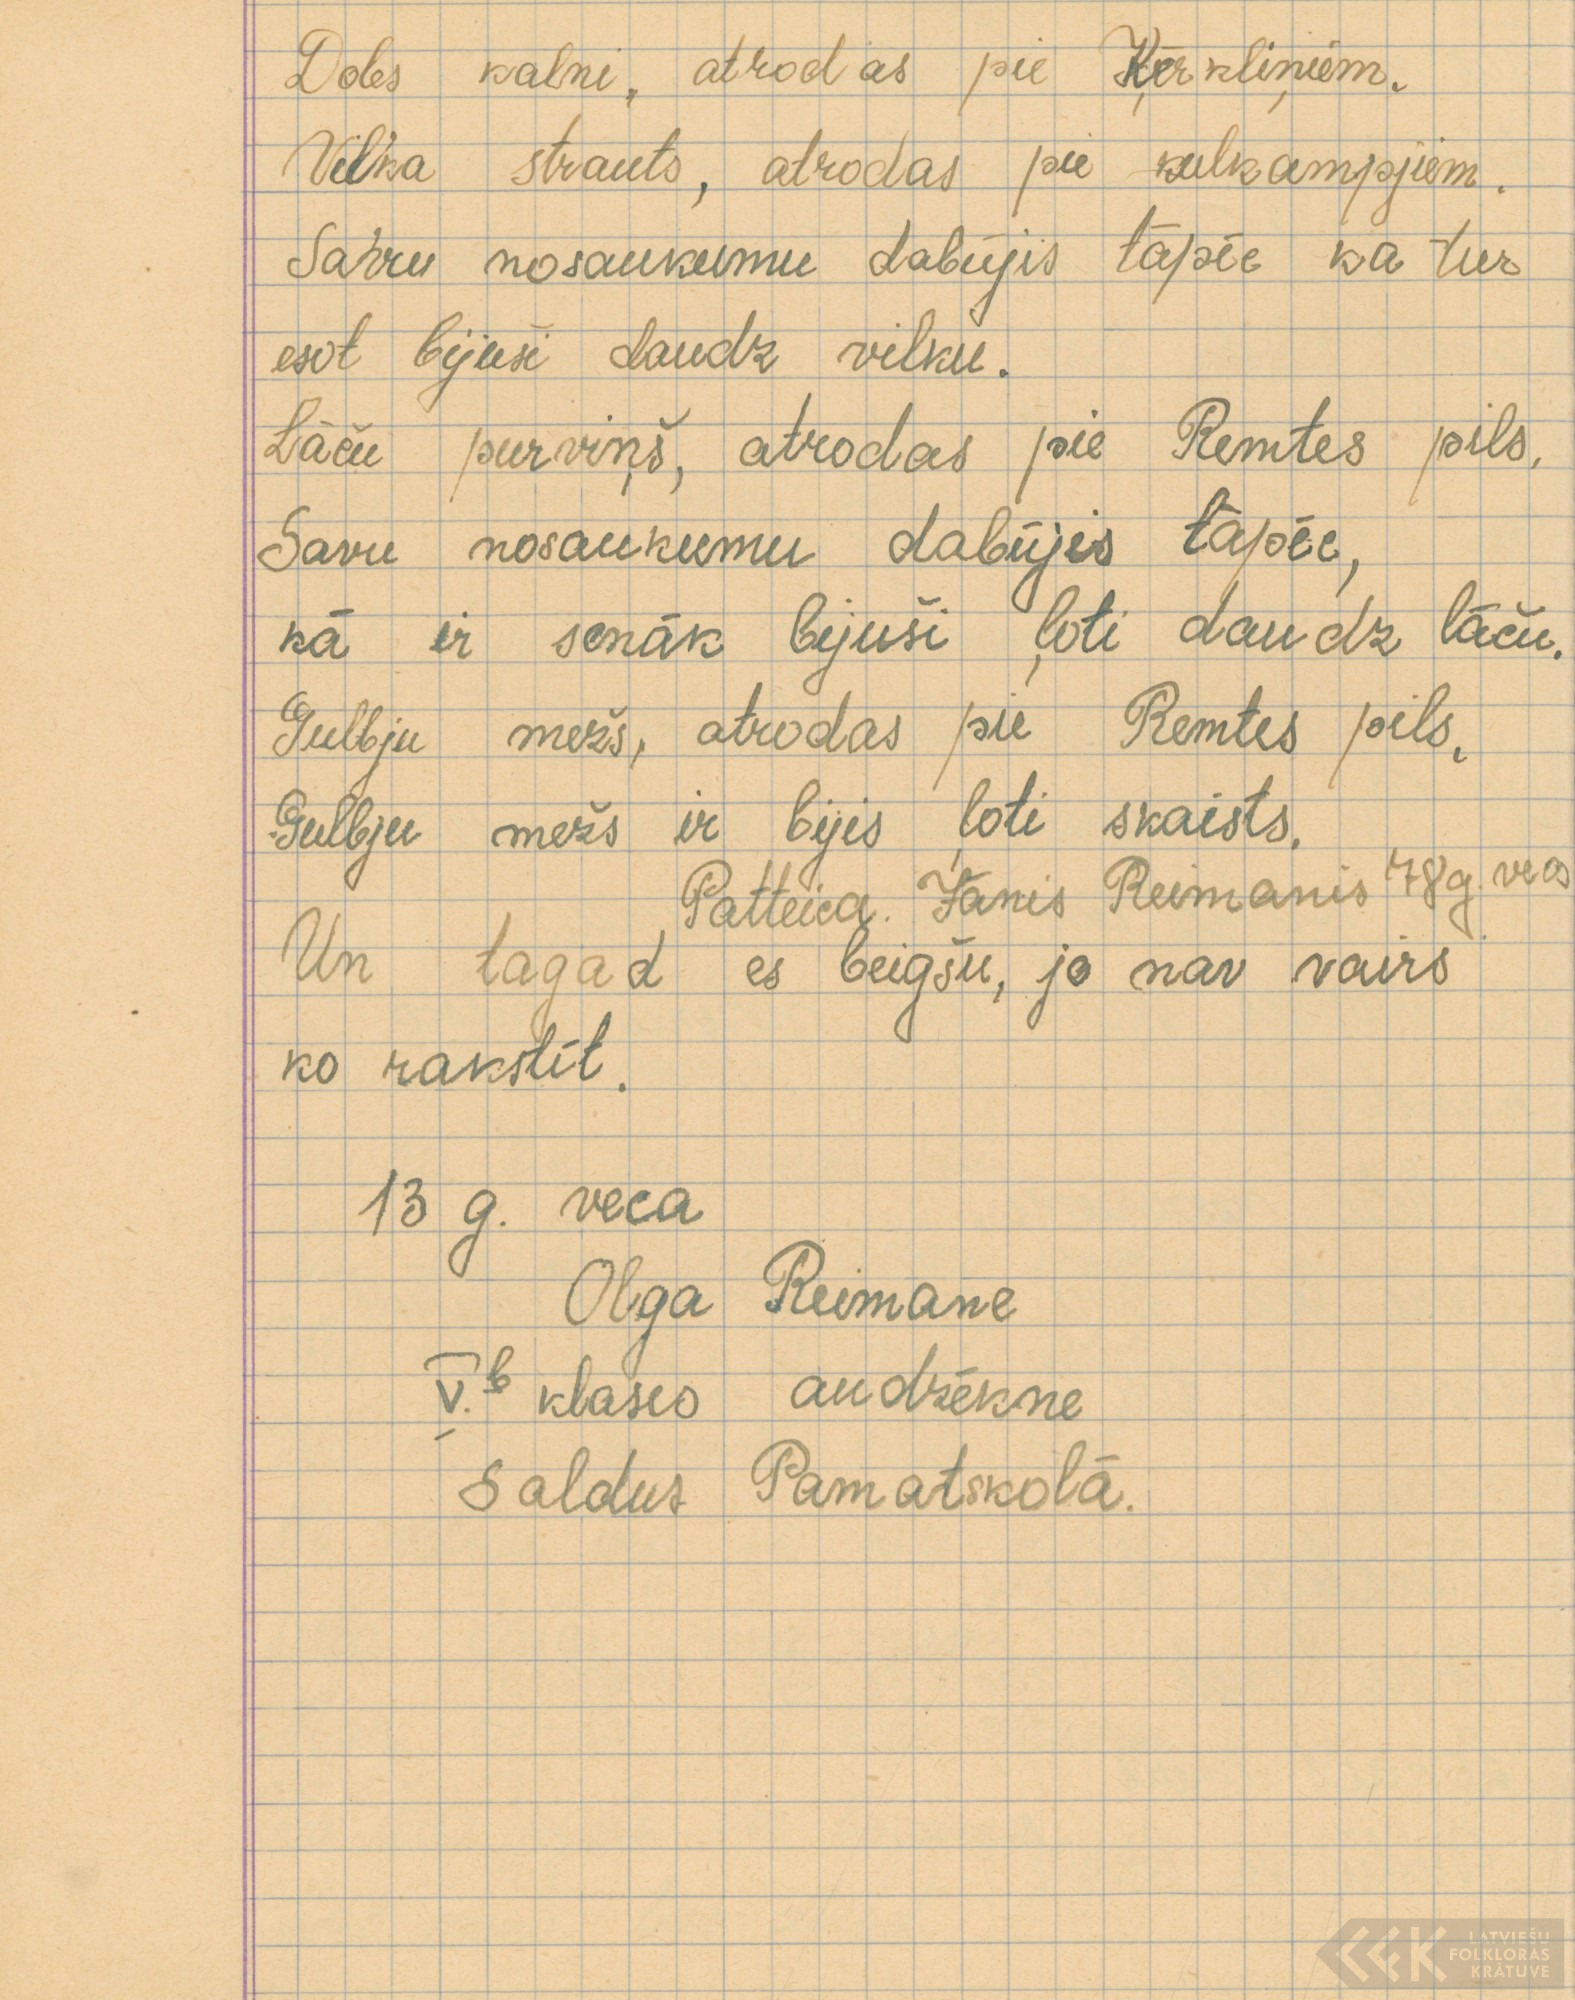 Dobs kalni, atrodas pie Ķērkliņiem.
Vilka strauts, atrodas pie kulkampjiem.
Savu nosaukumu dabūjis tāpēc ka tur
esot bijuši daudz vilku.
Lāču purviņš, atrodas pie Remtes pils.
Savu nosaukumu dabūjis tāpēc,
kā ir senāk bijuši ļoti daudz lāču.
Gulbju mežs, atrodas pie Remtes pils.
Gulbju mežs ir bijis ļoti skaists.
Patteica. Jānis Reimanis 78g. vecs
Un tagad es beigšu, jo nav vairs
ko rakstīt.
13 g. veca
Olga Reimane
V. b klases audzēkne
Saldus Pamatskolā.
LATVIEŠU
FOLKLORAS
KRĀTUVE